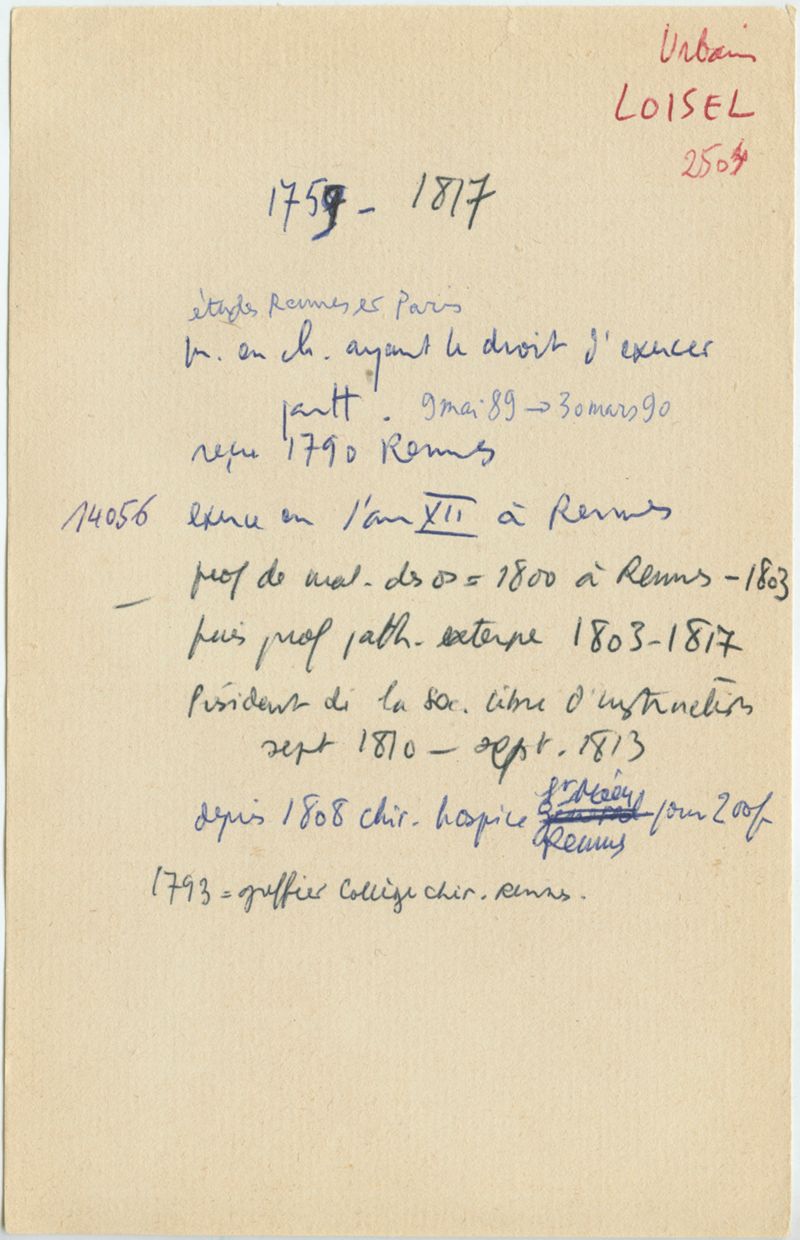 Urbain
LOISEL
2504
1759 - 1817
études Rennes et Paris
m. en ch. ayant le droit d'exercer
partt. 9 mai 89 → 30 mars 90
reçu 1790 Rennes
14056 exerce en l'an XII à Rennes
prof de mal. des os = 1800 à Rennes - 1803
- puis prof path. externe 1803-1817
Président de la Soc. libre d'instruction
sept 1810 - sept. 1813
depuis 1808 chir. hospice St Méen Rennes pour 200f
1793 = greffier Collège chir. Rennes.